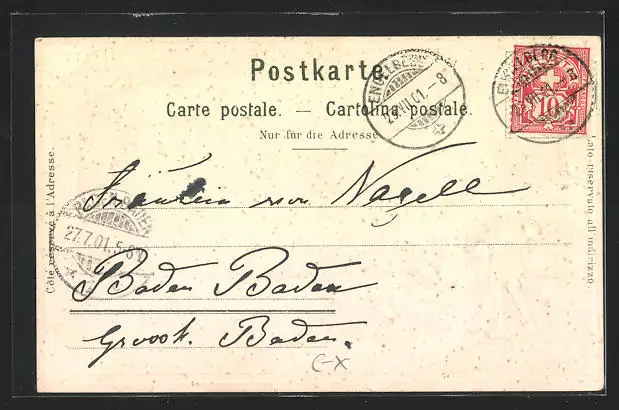 Postkarte.
Carte postale. — Cartolina postale.
Nur für die Adresse
Côté réservé à l'Adresse.
Lato riservato all'indirizzo
ENGELBERG
VII.01.-8
10
Fräulein von Nagell
27.7.01.5-6
Baden Baden
Grossh. Baden.
C-X